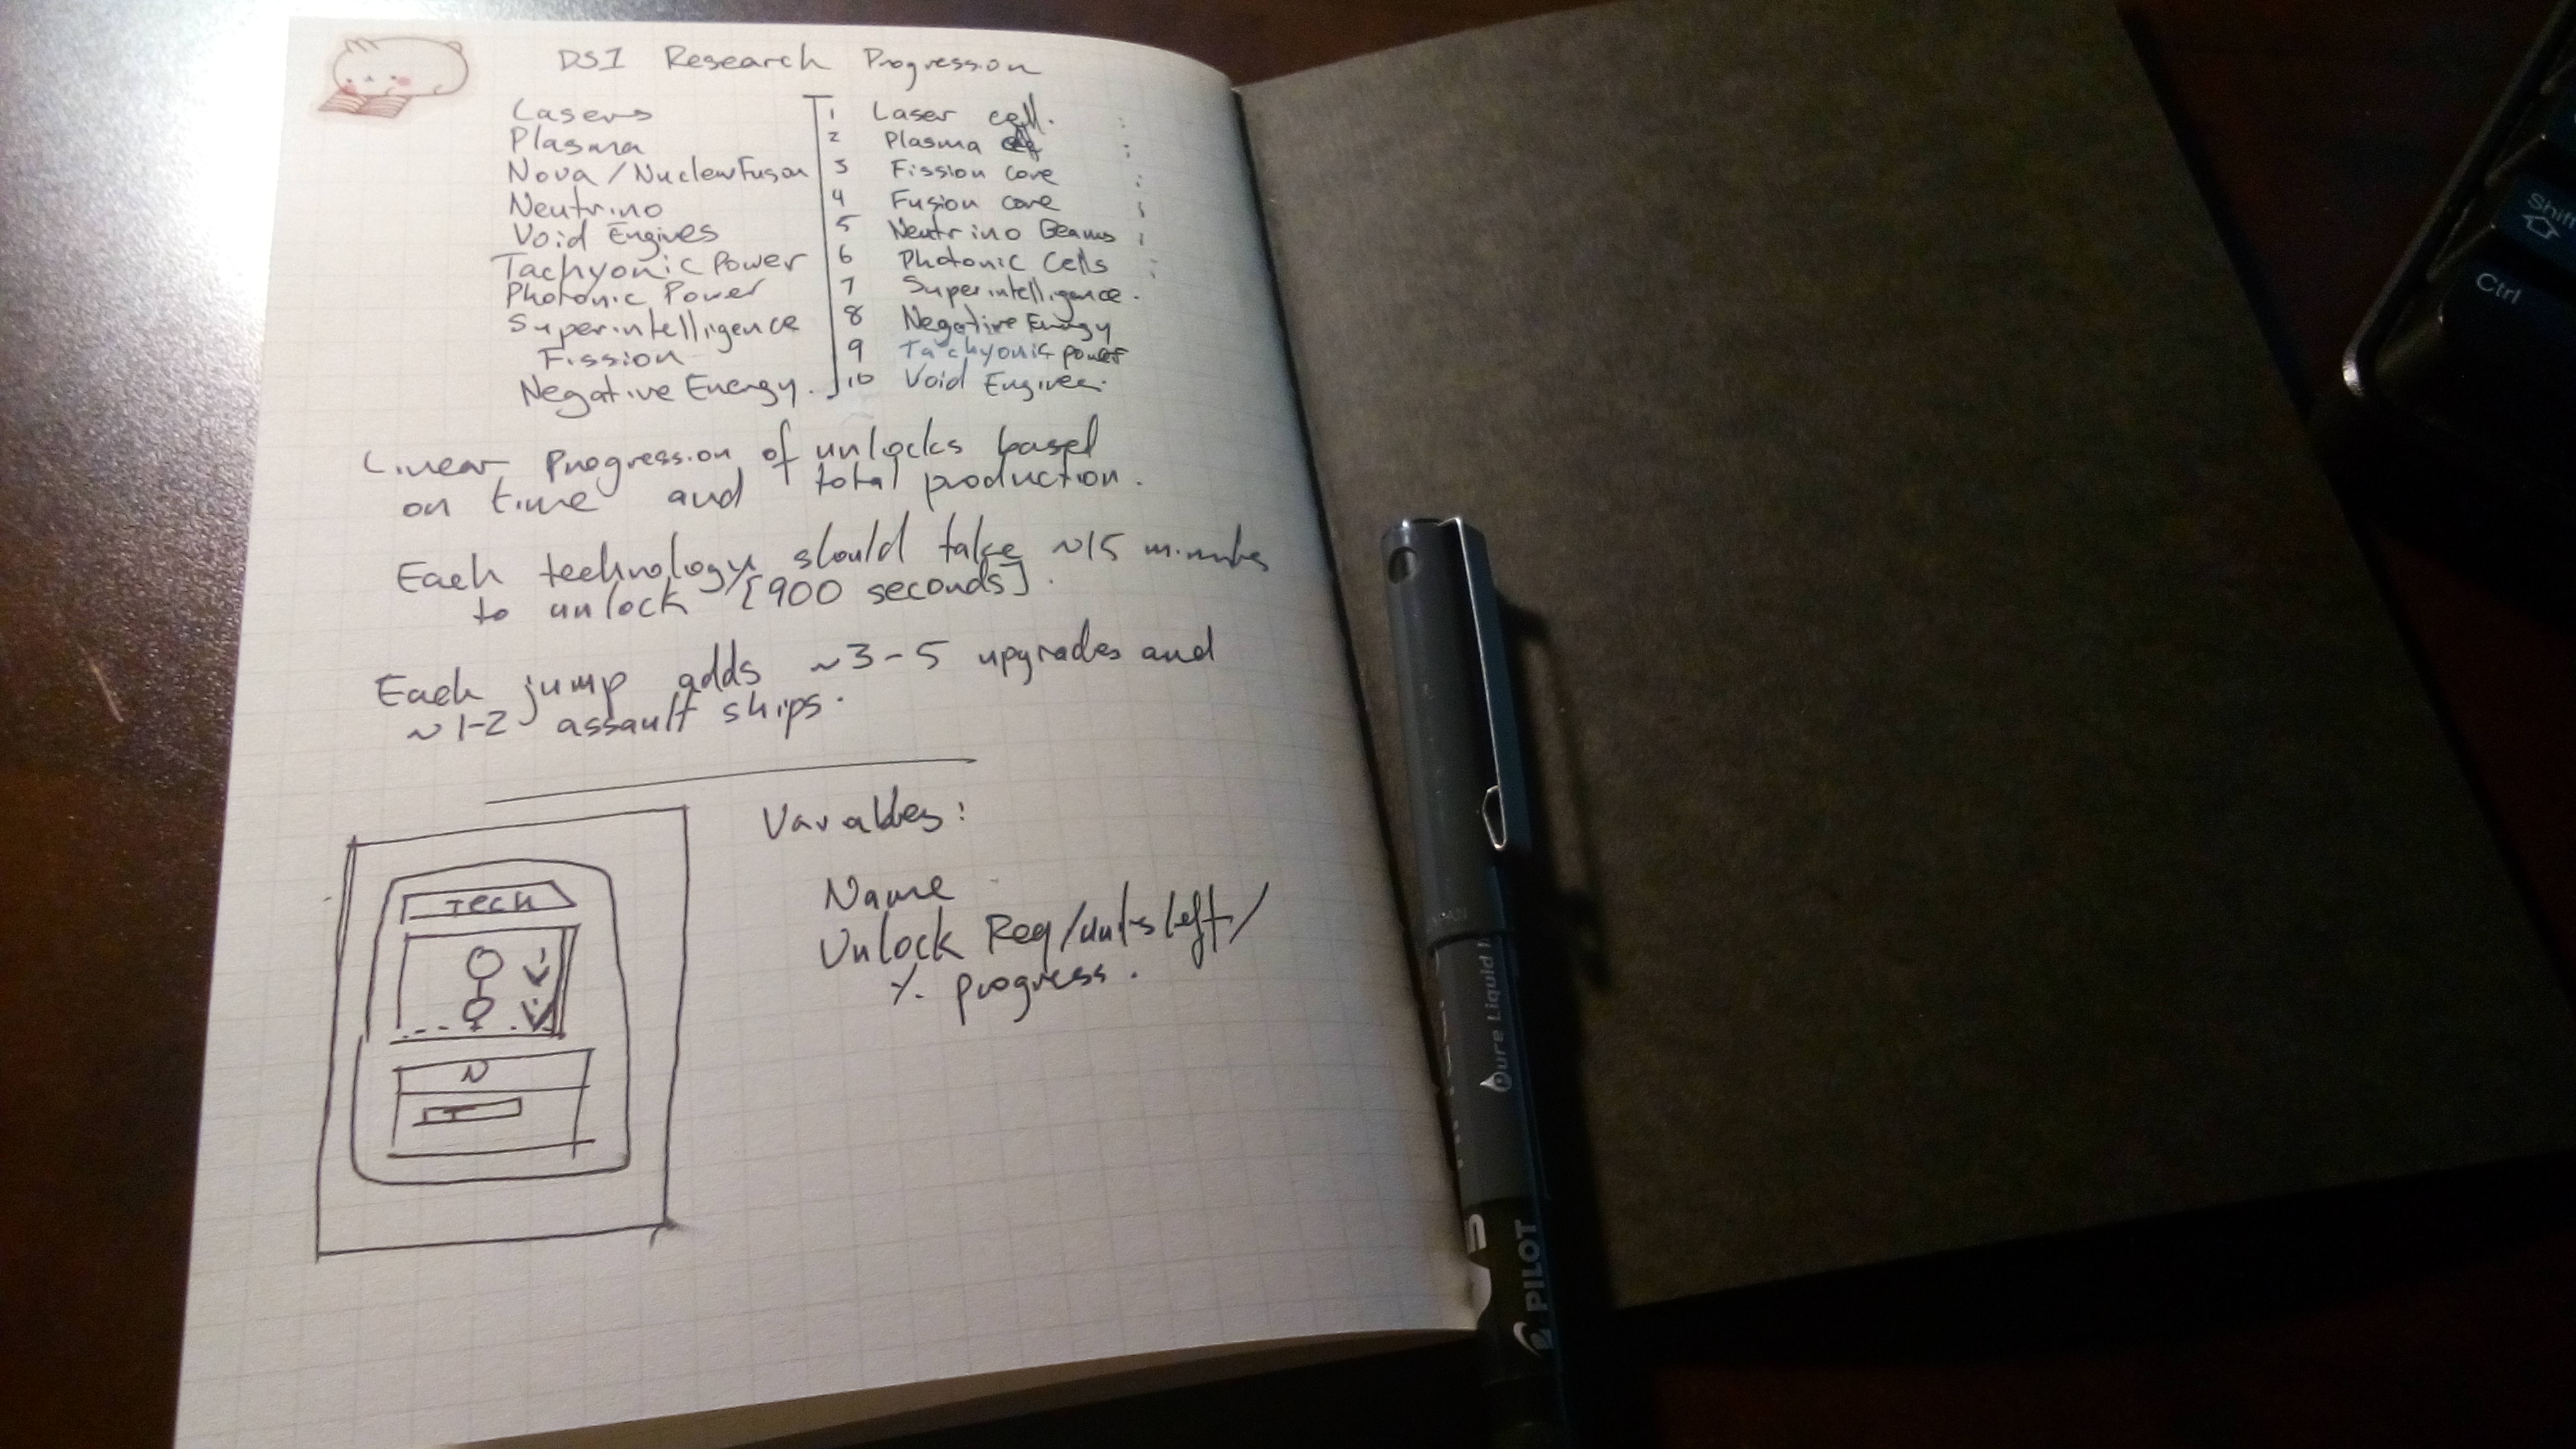 DSI Research Progression
Lasers
Plasma
Nova / Nuclear Fusion
Neutrino
Void Engines
Tachyonic Power
Photonic Power
Superintelligence
Fission
Negative Energy.
1 Laser cell.
2 Plasma
3 Fission core
4 Fusion core
5 Neutrino Beams
6 Photonic Cells
7 Superintelligence.
8 Negative Energy
9 Tachyonic power
10 Void Engines.
Linear progression of unlocks based
on time and total production.
Each technology should take ~15 minutes
to unlock [900 seconds].
Each jump adds ~3-5 upgrades and
~1-2 assault ships.
TECH
N
Variables:
Name
Unlock Req/units left/
% progress.
Shift
Ctrl
Pure Liquid
5
PILOT